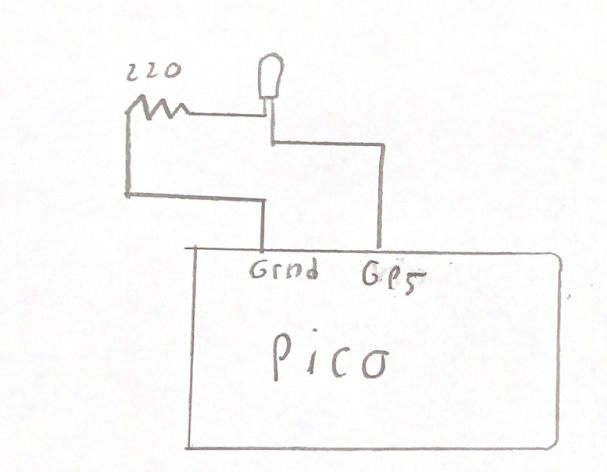 220
Grnd GP5
Pico